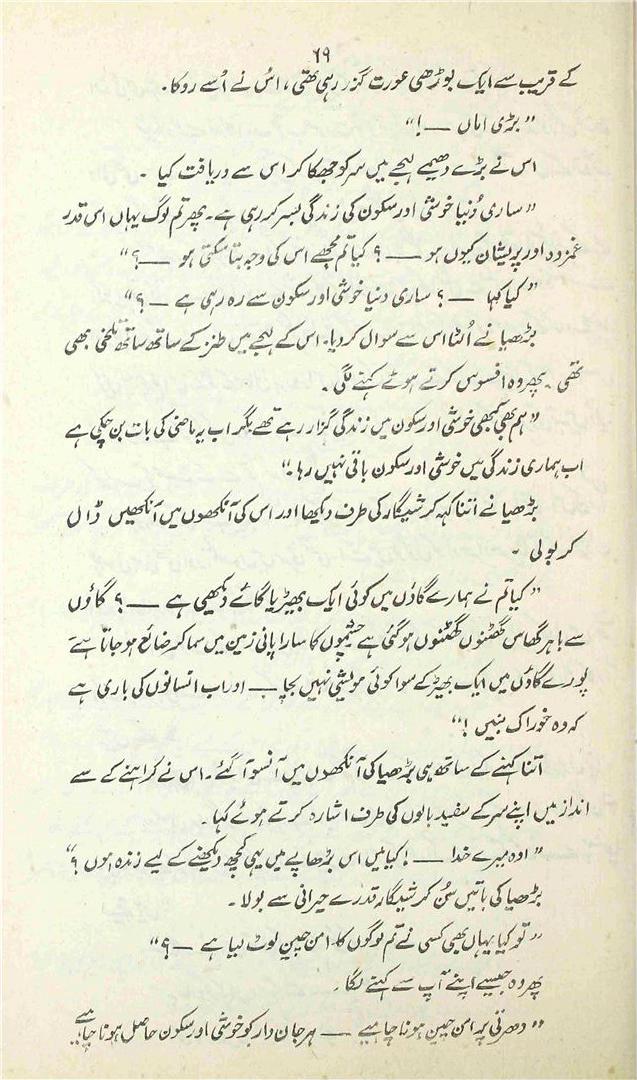 ۶۹
کے قریب سے ایک بوڑھی عورت گزر رہی تھی، اس نے اُسے روکا۔
”بڑی اماں —!“
اس نے بڑے دھیمے لہجے میں سر کو جھکا کر اس سے دریافت کیا۔
”ساری دُنیا خوشی اور سکون کی زندگی بسر کر رہی ہے۔ پھر تم لوگ یہاں اس قدر
غمزدہ اور پریشان کیوں ہو — ؟ کیا تم مجھے اس کی وجہ بتا سکتی ہو —؟“
”کیا کہا — ؟ ساری دنیا خوشی اور سکون سے رہ رہی ہے —؟“
بڑھیا نے اُلٹا اس سے سوال کر دیا۔ اس کے لہجے میں طنز کے ساتھ ساتھ تلخی بھی
تھی۔ پھر وہ افسوس کرتے ہوئے کہنے لگی۔
”ہم بھی کبھی خوشی اور سکون میں زندگی گزار رہے تھے مگر اب یہ ماضی کی بات بن چکی ہے
اب ہماری زندگی میں خوشی اور سکون باقی نہیں رہا۔“
بڑھیا نے اتنا کہہ کر شیگار کی طرف دیکھا اور اس کی آنکھوں میں آنکھیں ڈال
کر بولی۔
”کیا تم نے ہمارے گاؤں میں کوئی ایک بھیڑ یا گائے دیکھی ہے — ؟ گاؤں
سے باہر گھاس گھٹنوں گھٹنوں ہو گئی ہے چشموں کا سارا پانی زمین میں سما کر ضائع ہو جاتا ہے
پورے گاؤں میں ایک بھیڑ کے سوا کوئی مویشی نہیں بچا — اور اب انسانوں کی باری ہے
کہ وہ خوراک بنیں!“
اتنا کہنے کے ساتھ ہی بڑھیا کی آنکھوں میں آنسو آ گئے۔ اس نے کراہنے کے سے
انداز میں اپنے سر کے سفید بالوں کی طرف اشارہ کرتے ہوئے کہا۔
”اوہ میرے خدا —! کیا میں اس بڑھاپے میں یہی کچھ دیکھنے کے لیے زندہ ہوں؟“
بڑھیا کی باتیں سُن کر شیگار قدرے حیرانی سے بولا۔
”تو کیا یہاں بھی کسی نے تم لوگوں کا امن چین لوٹ لیا ہے —؟“
پھر وہ جیسے اپنے آپ سے کہنے لگا۔
”دھرتی پر امن چین ہونا چاہیے — ہر جان دار کو خوشی اور سکون حاصل ہونا چاہیے